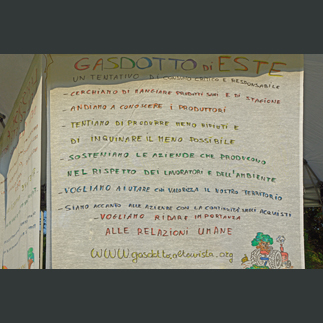 GASDOTTO DI ESTE
UN TENTATIVO DI CONSUMO CRITICO E RESPONSABILE
- CERCHIAMO DI MANGIARE PRODOTTI SANI E DI STAGIONE
- ANDIAMO A CONOSCERE I PRODUTTORI
- TENTIAMO DI PRODURRE MENO RIFIUTI E
DI INQUINARE IL MENO POSSIBILE
- SOSTENIAMO LE AZIENDE CHE PRODUCONO
NEL RISPETTO DEI LAVORATORI E DELL'AMBIENTE
- VOGLIAMO AIUTARE CHI VALORIZZA IL NOSTRO TERRITORIO
- SIAMO ACCANTO ALLE AZIENDE CON LA CONTINUITÀ DEGLI ACQUISTI
- VOGLIAMO RIDARE IMPORTANZA
ALLE RELAZIONI UMANE